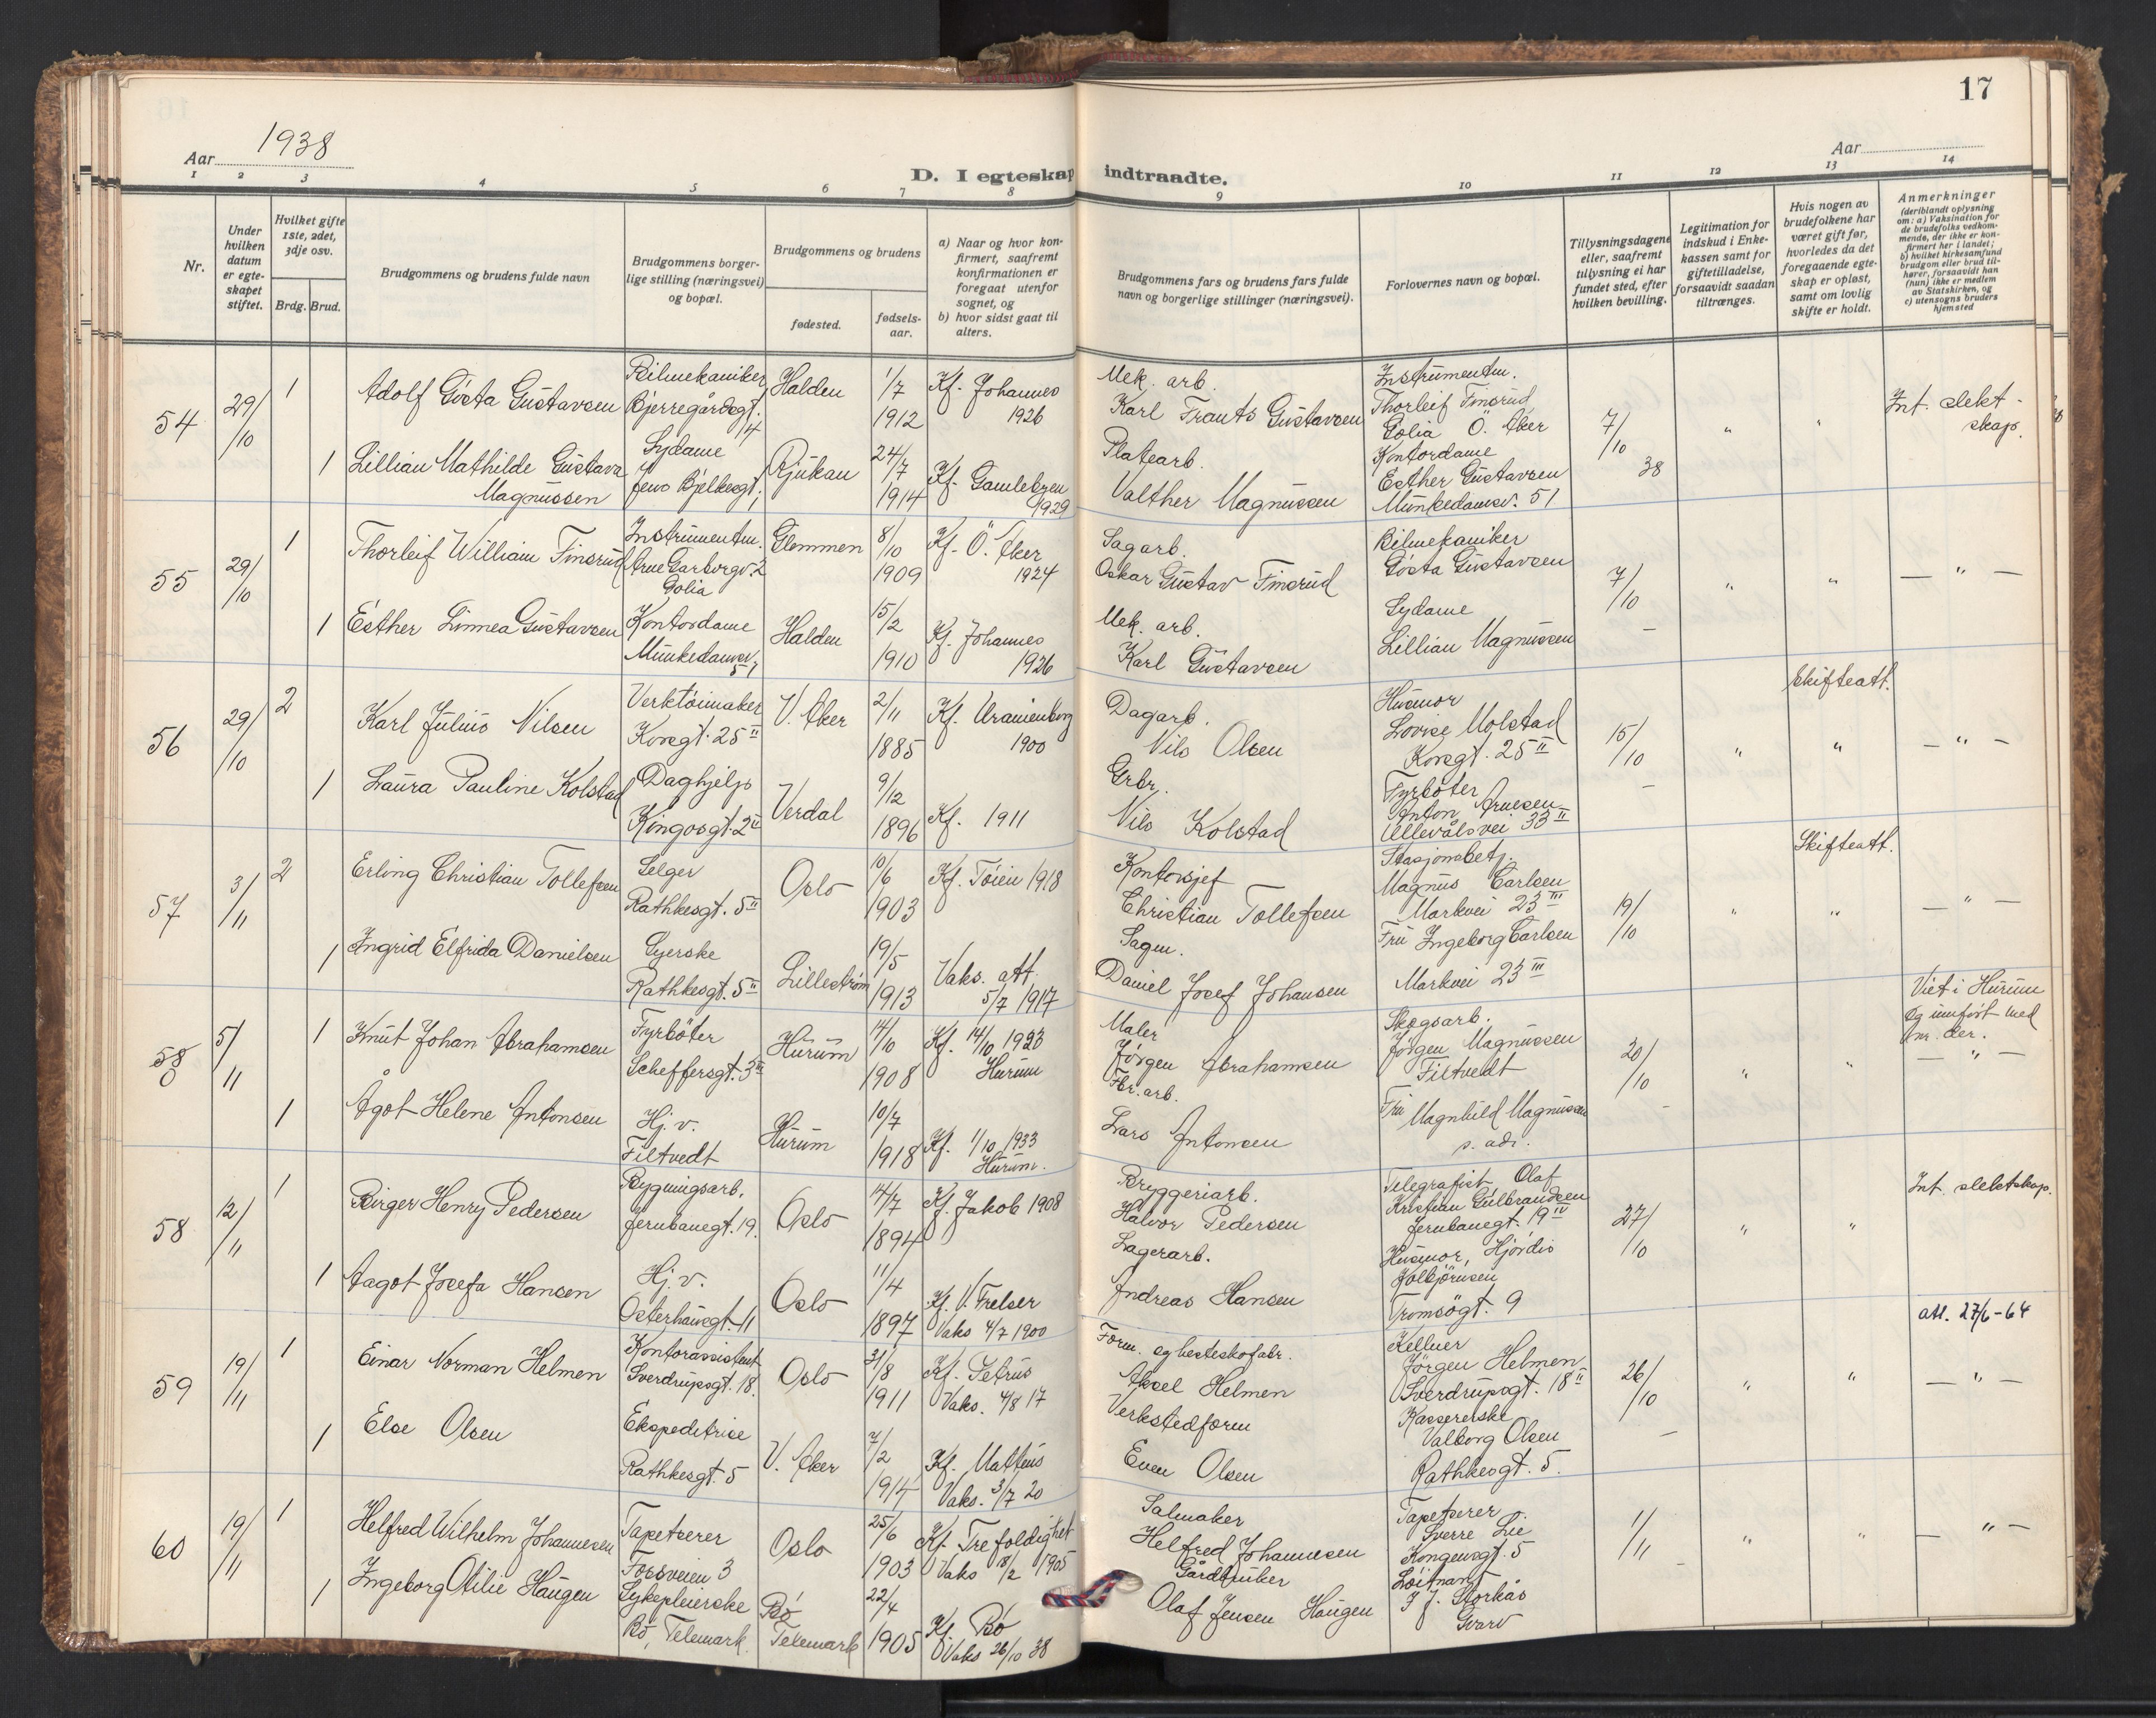 17
Aar 1938
Aar
D. I egteskap indtraadte.
1 2 3 4 5 6 7 8 9 10 11 12 13 14
Nr.
Under hvilken datum er egteskapet stiftet.
Hvilket gifte 1ste, 2det, 3dje osv.
Brdg. Brud.
Brudgommens og brudens fulde navn
Brudgommens borgerlige stilling (næringsvei) og bopæl.
Brudgommens og brudens
fødested.
fødselsaar.
a) Naar og hvor konfirmert, saafremt konfirmationen er foregaat utenfor sognet, og
b) hvor sidst gaat til alters.
Brudgommens fars og brudens fars fulde navn og borgerlige stillinger (næringsvei).
Forlovernes navn og bopæl.
Tillysningsdagene eller, saafremt tillysning ei har fundet sted, efter hvilken bevilling.
Legitimation for indskud i Enkekassen samt for giftetilladelse, forsaavidt saadan tiltrænges.
Hvis nogen av brudefolkene har været gift før, hvorledes da det foregaaende egteskap er opløst, samt om lovlig skifte er holdt.
Anmerkninger
(deriblandt oplysning om: a) Vaksination for de brudefolks vedkommende, der ikke er konfirmert her i landet; b) hvilket kirkesamfund brudgom eller brud tilhører, forsaavidt han (hun) ikke er medlem av Statskirken, og c) utensogns bruders hjemsted
54 29/10 1 Adolf Gösta Gustavsen Bilmekaniker Bjerregårdsgt. 14 Halden 1/7 1912 Kf. Johannes 1926 Mek. arb. Karl Frants Gustavsen Instrumentm. Thorleif Finsrud Golia Ö. Aker 7/10 38 " " Int. slektskap.
1 Lillian Mathilde Gustava Magnussen Sydame Jens Bjelkesgt. Rjukan 24/7 1914 Kf. Gamlebyen 1929 Platearb. Valther Magnussen Kontordame Esther Gustavsen Munkedamsv. 51
55 29/10 1 Thorleif William Finsrud Instrumentm. Arne Garborgv. 2 Golia Glemmen 8/10 1909 Kf. Ö. Aker 1924 Sagarb. Oskar Gustav Finsrud Bilmekaniker Gösta Gustavsen 7/10 " " — " —
1 Esther Linnea Gustavsen Kontordame Munkedamsv. 51 Halden 15/2 1910 Kf. Johannes 1926 Mek. arb. Karl Gustavsen Sydame Lillian Magnussen
56 29/10 2 Karl Julius Nilsen Verktöimaker Korsgt. 25 II V. Aker 2/11 1885 Kf. Uranienborg 1900 Dagarb. Nils Olsen Husmor Lovise Molstad Korsgt. 25 II 15/10 " Skifteatt. " — " —
1 Laura Pauline Kolstad Daghjelp Kingosgt. 2 II Verdal 9/12 1896 Kf. 1911 Grbr. Nils Kolstad Fyrböter Anton Arnesen Ullevålsvei 33 II
57 3/11 2 Erling Christian Tollefsen Selger Rathkesgt. 5 II Oslo 10/6 1903 Kf. Töien 1918 Kontorsjef Christian Tollefsen Stasjonsbetj. Magnus Carlsen Markvei 23 III 19/10 " Skifteatt. " — " —
1 Ingrid Elfrida Danielsen Syerske Rathkesgt. 5 II Lilleström 19/5 1913 Vaks. att. 5/7 1917 Sagm. Daniel Josef Johansen Fru Ingeborg Carlsen Markvei 23 III
58 0 5/11 1 Knut Johan Abrahamsen Fyrböter Scheffersgt. 3 III Hurum 14/10 1908 Kf. 14/10 1923 Hurum Maler Jörgen Abrahamsen Skogsarb. Jörgen Magnussen Filtvedt 20/10 " " Viet i Hurum og innfört med nr. der. — " —
1 Ågot Helene Antonsen Hj. v. Filtvedt Hurum 10/7 1918 Kf. 1/10 1933 Hurum. Fbr. arb. Lars Antonsen Fru Magnhild Magnussen s. adr.
58 12/11 1 Birger Henry Pedersen Bygningsarb. Jernbanegt. 19. Oslo 14/7 1894 Kf. Jakob 1908 Bryggeriarb. Halvor Pedersen Telegrafist Olaf Kristian Gulbrandsen Jernbanegt. 19 IV 27/10 " " Int. slektskap.
1 Aagot Josefa Hansen Hj. v. Osterhausgt. 11 Oslo 11/4 1897 Kf. V. Frelser Vaks 4/7 1900 Lagerarb. Andreas Hansen Husmor, Hjördis Kolbjörnsen Tromsögt. 9
59 19/11 1 Einar Norman Helmen Kontorassistent Sverdrupsgt. 18. Oslo 31/8 1911 Kf. Petrus Vaks. 4/8 17 Form. og hesteskofabr. Aksel Helmen Kellner Jörgen Helmen Sverdrupsgt. 18 II 26/10 " " att. 27/6-64 — " —
1 Else Olsen Ekspeditrise Rathkesgt. 5 V. Aker 7/2 1914 Kf. Matteus Vaks. 3/7 20 Verkstedform Even Olsen Kassererske Valborg Olsen Rathkesgt. 5.
60 19/11 1 Helfred Wilhelm Johannesen Tapetserer Forsveien 3 Oslo 25/6 1903 Kf. Trefoldighet Vaks 18/2 1905 Salmaker Helfred Johannesen Tapetserer Sverre Lie Kongensgt. 5 1/11 " " — " —
1 Ingeborg Otilie Haugen Sykepleierske Bö, Telemark. Bö Telemark 22/4 1905 Kf. Bö Vaks 26/10 38 Gårdbruker Olaf Jensen Haugen Löitnant J. Storkås Gvarv